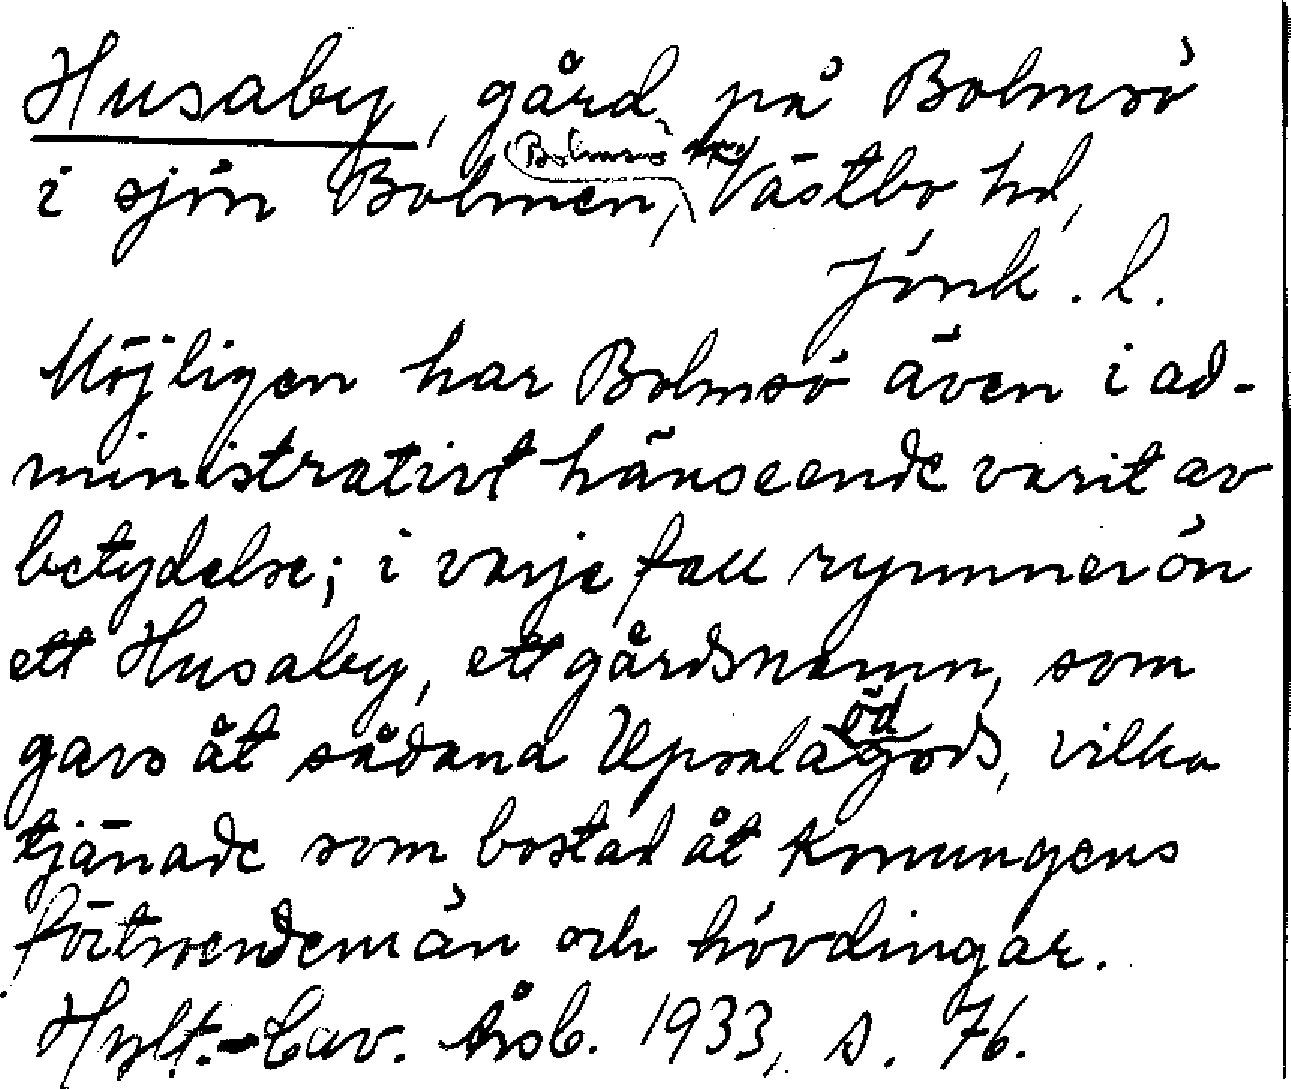 Husaby, gård på Bolmsö
i sjön Bolmen, Bolmsö Västbo hd,
Jönk. l.
Möjligen har Bolmsö även i ad-
ministrativt hänseende varit av
betydelse; i varje fall rymmer ön
ett Husaby, ett gårdsnamn, som
gavs åt sådana Upsala öd gods, vilka
tjänade som bostad åt konungens
förtroendemän och hövdingar.
Hylt.-Cav. Årsb. 1933, s. 76.